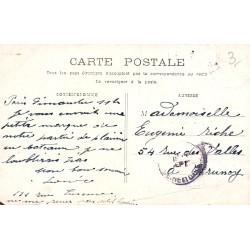 CARTE POSTALE
Tous les pays étrangers n'acceptent pas la correspondance au recto
Se renseigner à la poste
CORRESPONDANCE
ADRESSE
Paris Dimanche
je vous envoie une
petite marque de
notre partie de plaisir
en bateau je ne
oublierai pas
Mon bon souvenir
Mademoiselle
Eugénie Riche
54 rue des Vallées
à Brunoy
3